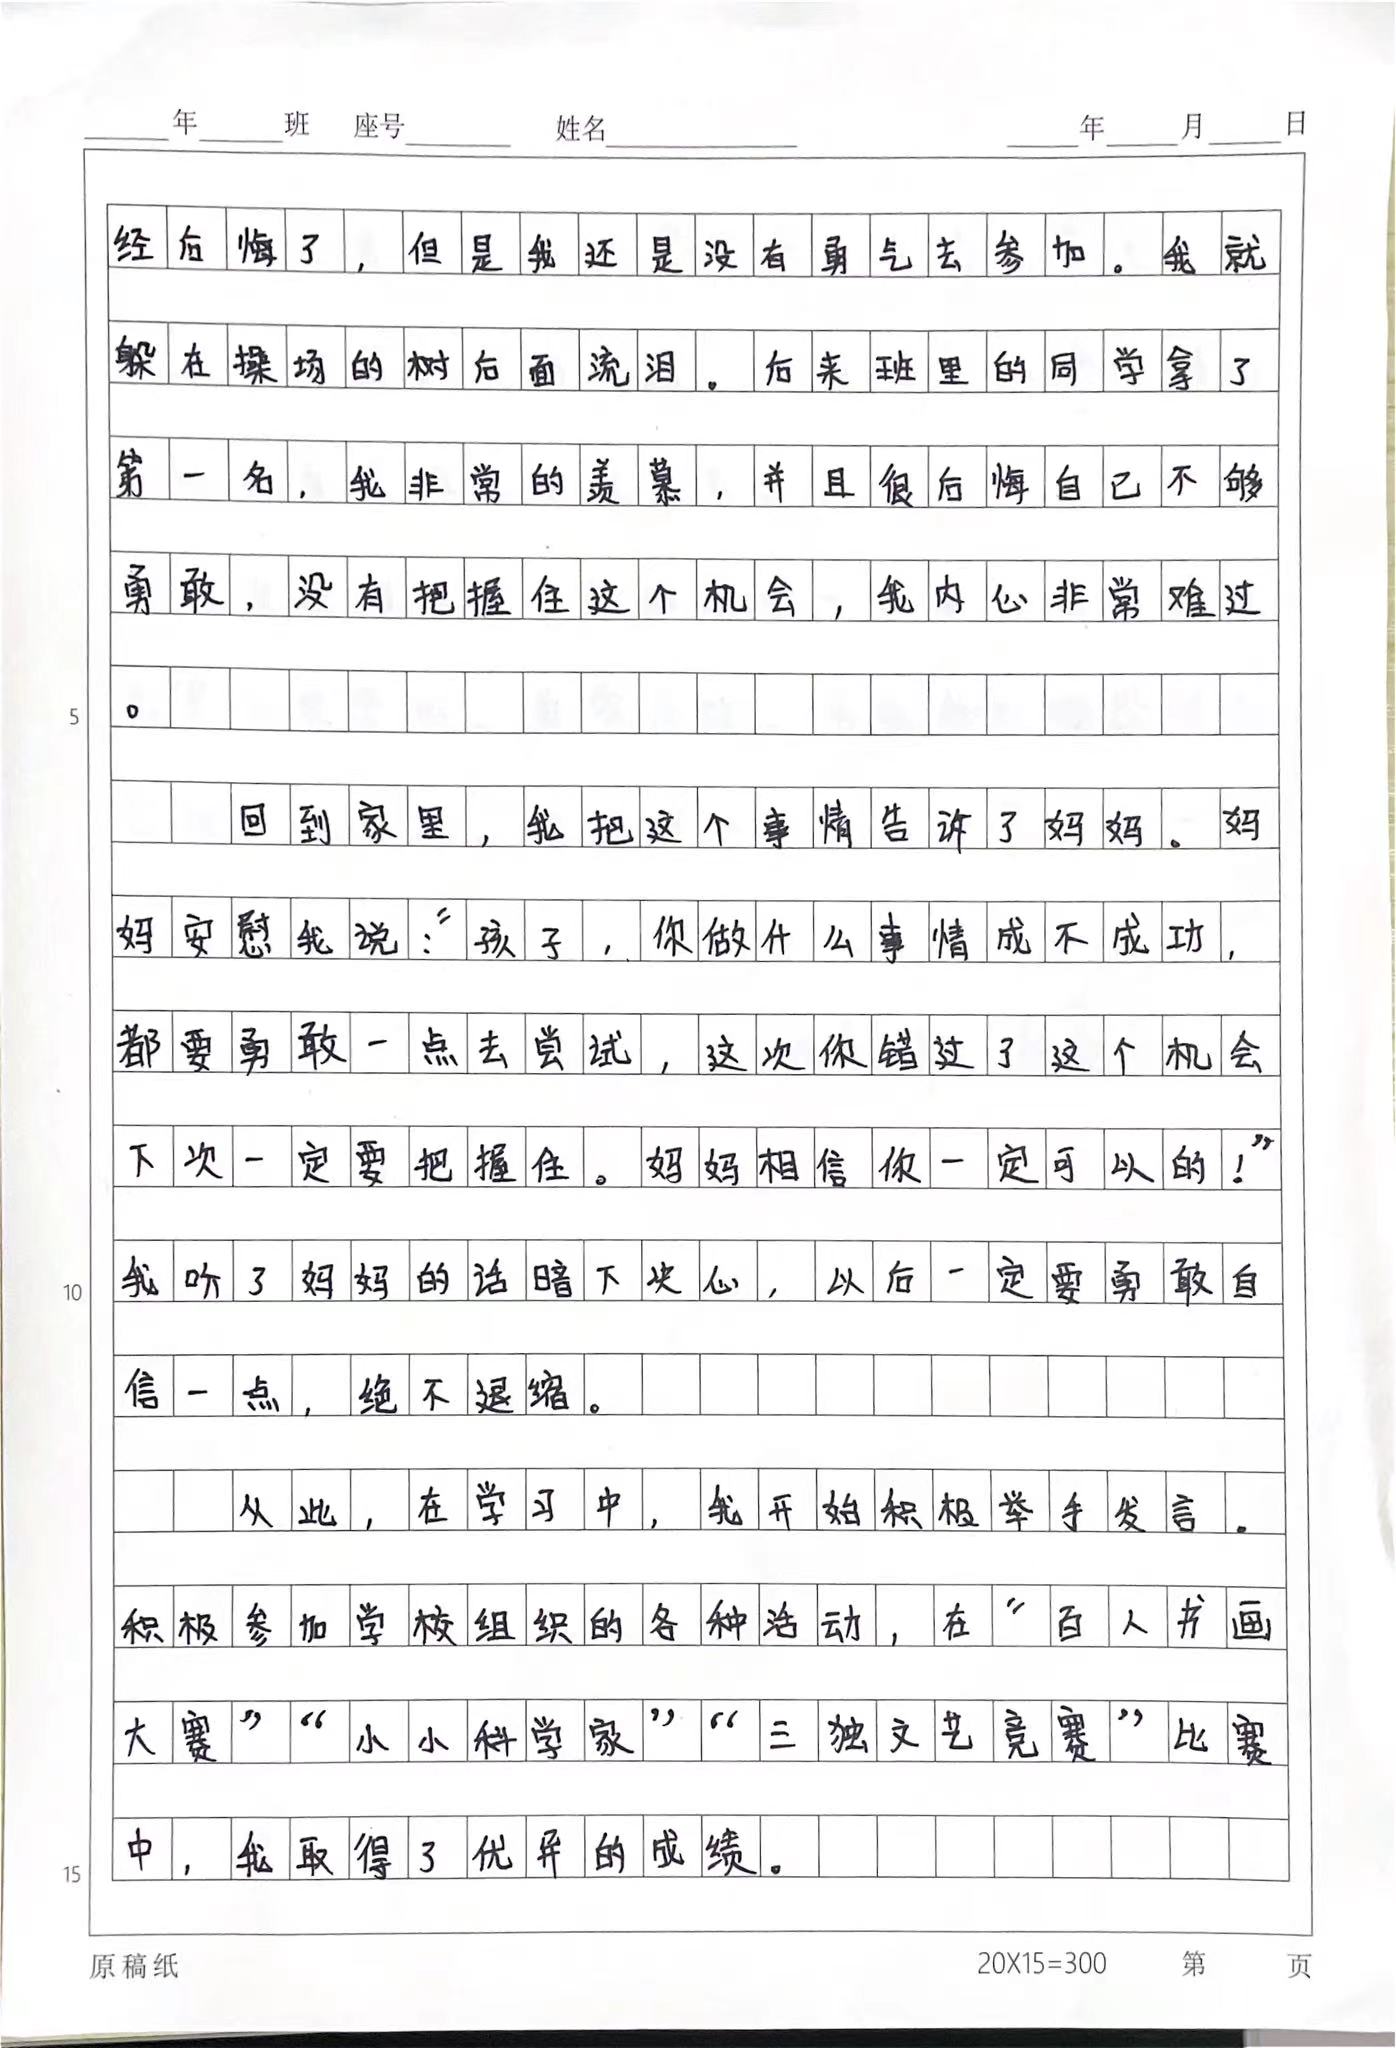 年 班 座号 姓名 年 月 日
经后悔了，但是我还是没有勇气去参加。我就
躲在操场的树后面流泪。后来班里的同学拿了
第一名，我非常的羡慕，并且很后悔自己不够
勇敢，没有把握住这个机会，我内心非常难过
5
。
回到家里，我把这个事情告诉了妈妈。妈
妈安慰我说：“孩子，你做什么事情成不成功，
都要勇敢一点去尝试，这次你错过了这个机会
下次一定要把握住。妈妈相信你一定可以的！”
10
我听了妈妈的话暗下决心，以后一定要勇敢自
信一点，绝不退缩。
从此，在学习中，我开始积极举手发言。
积极参加学校组织的各种活动，在“百人书画
大赛”“小小科学家”“三独文艺竞赛”比赛
15
中，我取得了优异的成绩。
原稿纸 20X15=300 第 页